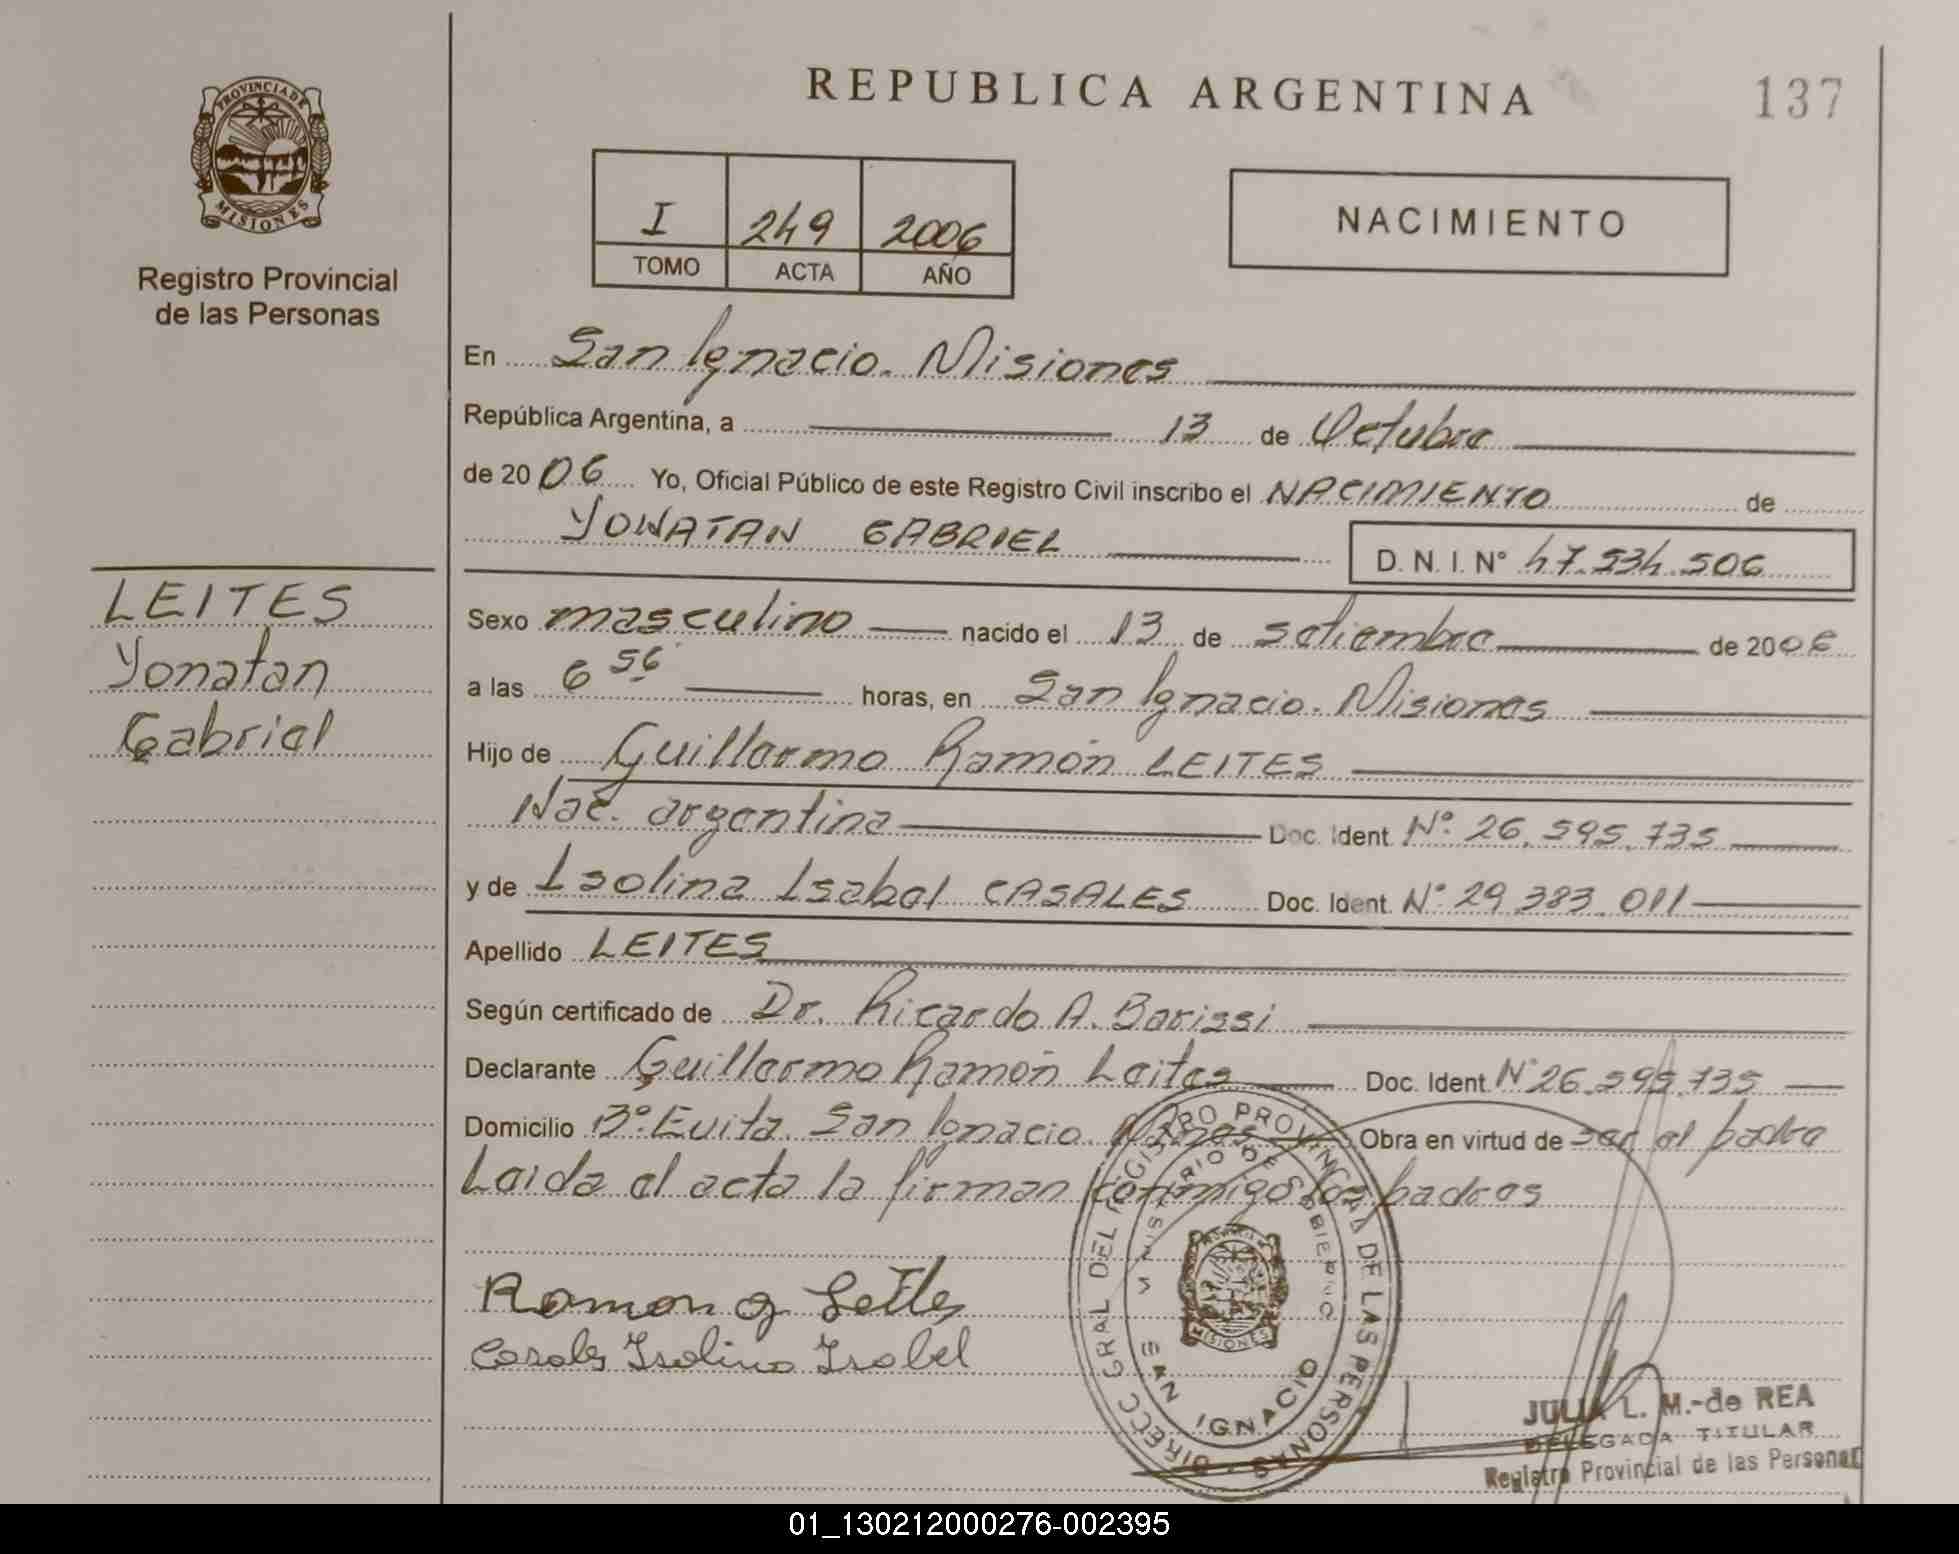 REPUBLICA ARGENTINA
137
PROVINCIA DE MISIONES
Registro Provincial
de las Personas
I 249 2006
TOMO ACTA AÑO
NACIMIENTO
En San Ignacio. Misiones
República Argentina, a 13 de Octubre
de 2006 Yo, Oficial Público de este Registro Civil inscribo el NACIMIENTO de
YONATAN GABRIEL D. N. I. N° 47.534.506
LEITES
Yonatan
Gabriel
Sexo masculino nacido el 13 de setiembre de 2006
a las 6 56 horas, en San Ignacio. Misiones
Hijo de Guillermo Ramón LEITES
Nac. argentina Doc. Ident. N° 26.595.735
y de Isolina Isabel CASALES Doc. Ident. N° 29.383.011
Apellido LEITES
Según certificado de Dr. Ricardo A. Barissi
Declarante Guillermo Ramón Leites Doc. Ident. N° 26.595.735
Domicilio B° Evita. San Ignacio. Mnes Obra en virtud de ser el padre
Leida el acta la firman conmigo los padres
Ramon g Leites
Casales Isolina Isabel
DIRECC GRAL DEL REGISTRO PROVINCIAL DE LAS PERSONAS
MINISTERIO DE GOBIERNO
MISIONES
SAN IGNACIO
JULIA L. M.-de REA
DELEGADA TITULAR
Registro Provincial de las Personas
01_130212000276-002395